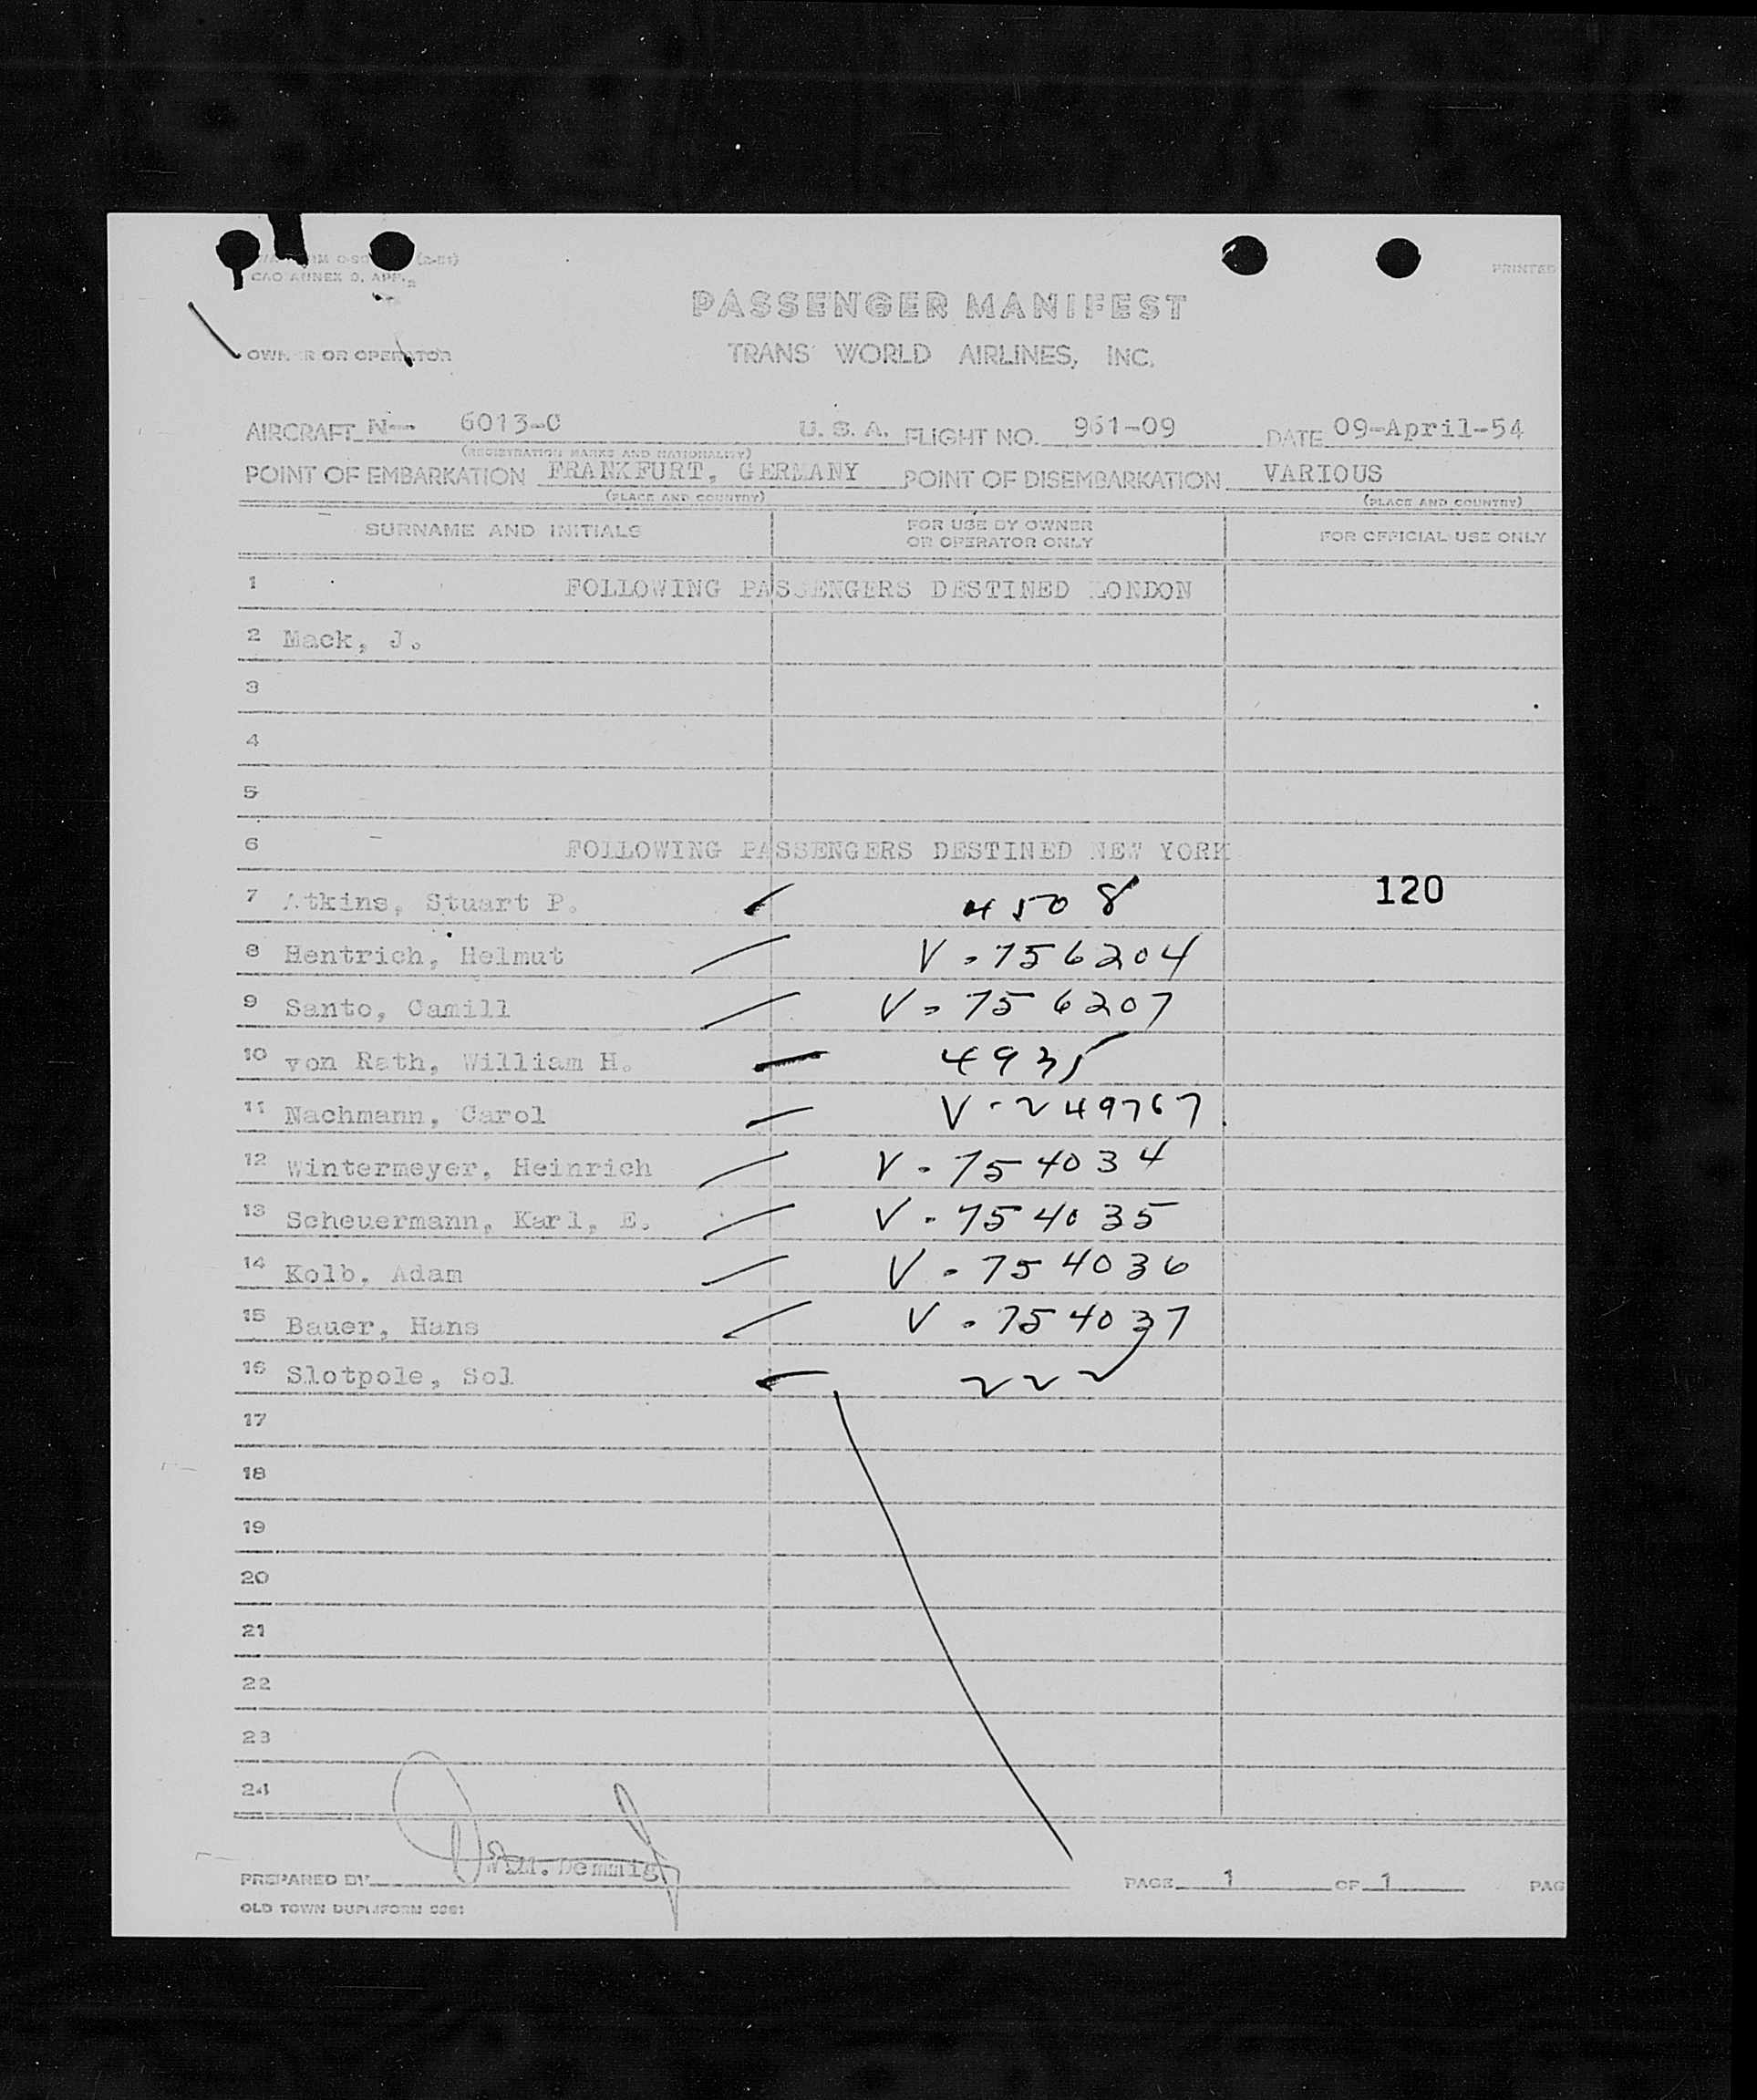 (2-51)
CAO ANNEX 9, APP.
PRINTED
PASSENGER MANIFEST
OWNER OR OPERATOR TRANS WORLD AIRLINES, INC.
AIRCRAFT N-- 6013-C U. S. A. FLIGHT NO. 961-09 DATE 09-April-54
(REGISTRATION MARKS AND NATIONALITY)
POINT OF EMBARKATION FRANKFURT, GERMANY POINT OF DISEMBARKATION VARIOUS
(PLACE AND COUNTRY) (PLACE AND COUNTRY)
SURNAME AND INITIALS FOR USE BY OWNER OR OPERATOR ONLY FOR OFFICIAL USE ONLY
1 FOLLOWING PASSENGERS DESTINED LONDON
2 Mack, J.
3
4
5
6 FOLLOWING PASSENGERS DESTINED NEW YORK
7 Atkins, Stuart P. 4508 120
8 Hentrich, Helmut V-756204
9 Santo, Camill V-756207
10 von Rath, William H. 4935
11 Nachmann, Carol V-249767
12 Wintermeyer, Heinrich V-754034
13 Scheuermann, Karl, E. V-754035
14 Kolb, Adam V-754036
15 Bauer, Hans V-754037
16 Slotpole, Sol 222
17
18
19
20
21
22
23
24
PREPARED BY Demmig
PAGE 1 OF 1 PAG
OLD TOWN DUPLIFORM